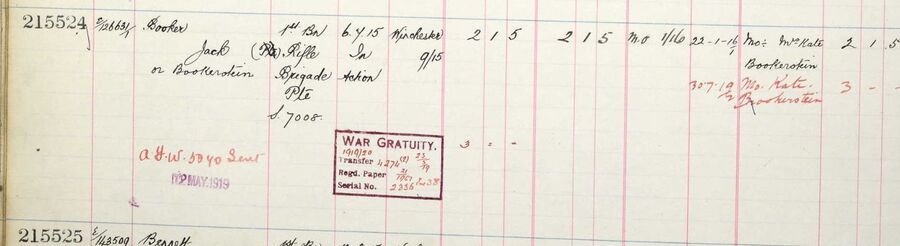 215524 E/126631/1 Booker 1st Bn 6.4.15 Winchester 2 1 5 2 1 5 M.O 1/16 22-1-16 Mo: Mrs Kate 2 1 5
Jack (Pte) Rifle In 9/15 Bookerstein
or Bookerstein Brigade Action 30-7-19 Mo. Kate. 3 - -
Pte Bookerstein
S. 7008.
WAR GRATUITY. 3 = -
A.F.W. 5040 Sent 1919/20
Transfer 4274
2 MAY.1919 Regd. Paper
Serial No. 2336
215525 E/143509 Bennett 1st Bn